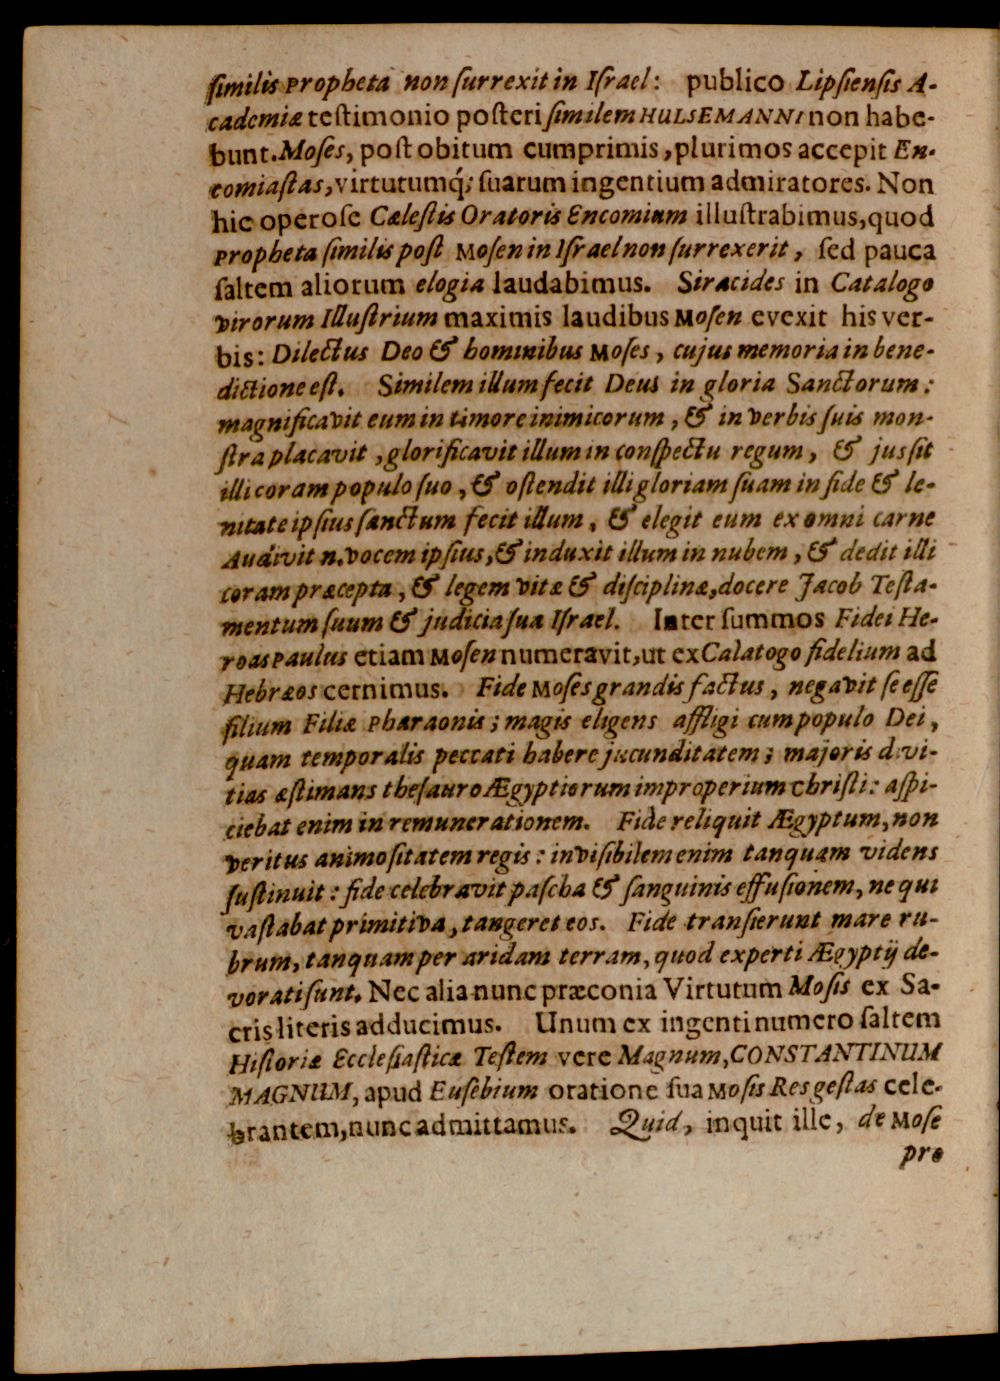 ſimilis Propheta non ſurrexit in Iſrael: publico Lipſienſis A-
cademiæ teſtimonio poſteri ſimilem HULSEMANNI non habe-
bunt. Moſes, poſt obitum cumprimis, plurimos accepit En-
comiaſtas, virtutumq́; ſuarum ingentium admiratores. Non
hic operoſe Cæleſtis Oratoris Encomium illuſtrabimus, quod
Propheta ſimilis poſt Moſen in Iſrael non ſurrexerit, ſed pauca
ſaltem aliorum elogia laudabimus. Siracides in Catalogo
virorum Illuſtrium maximis laudibus Moſen evexit his ver-
bis: Dilectus Deo & hominibus Moſes, cujus memoria in bene-
dictione eſt. Similem illum fecit Deus in gloria Sanctorum:
magnificavit eum in timore inimicorum, & in verbis ſuis mon-
ſtra placavit, glorificavit illum in conſpectu regum, & jusſit
illi coram populo ſuo, & oſtendit illi gloriam ſuam in fide & le-
nitate ipſius ſanctum fecit illum, & elegit eum ex omni carne
Audivit n. vocem ipſius, & induxit illum in nubem, & dedit illi
coram præcepta, & legem vitæ & diſciplinæ, docere Jacob Teſta-
mentum ſuum & judicia ſua Iſrael. Inter ſummos Fidei He-
roas Paulus etiam Moſen numeravit, ut ex Calatogo fidelium ad
Hebræos cernimus. Fide Moſes grandis factus, negavit ſe eſſe
filium Filiæ Pharaonis; magis eligens affligi cum populo Dei,
quam temporalis peccati habere jucunditatem; majoris divi-
tias æſtimans theſauro Ægyptiorum improperium Chriſti: aſpi-
ciebat enim in remunerationem. Fide reliquit Ægyptum, non
veritus animoſitatem regis: inviſibilem enim tanquam videns
ſuſtinuit: fide celebravit paſcha & ſanguinis effuſionem, ne qui
vaſtabat primitiva, tangeret eos. Fide tranſierunt mare ru-
brum, tanquam per aridam terram, quod experti Ægyptij de-
vorati ſunt. Nec alia nunc præconia Virtutum Moſis ex Sa-
cris literis adducimus. Unum ex ingenti numero ſaltem
Hiſtoriæ Eccleſiaſticæ Teſtem vere Magnum, CONSTANTINUM
MAGNUM, apud Euſebium oratione ſua Moſis Res geſtas cele-
brantem, nunc admittamus. Quid, inquit ille, de Moſe
pro